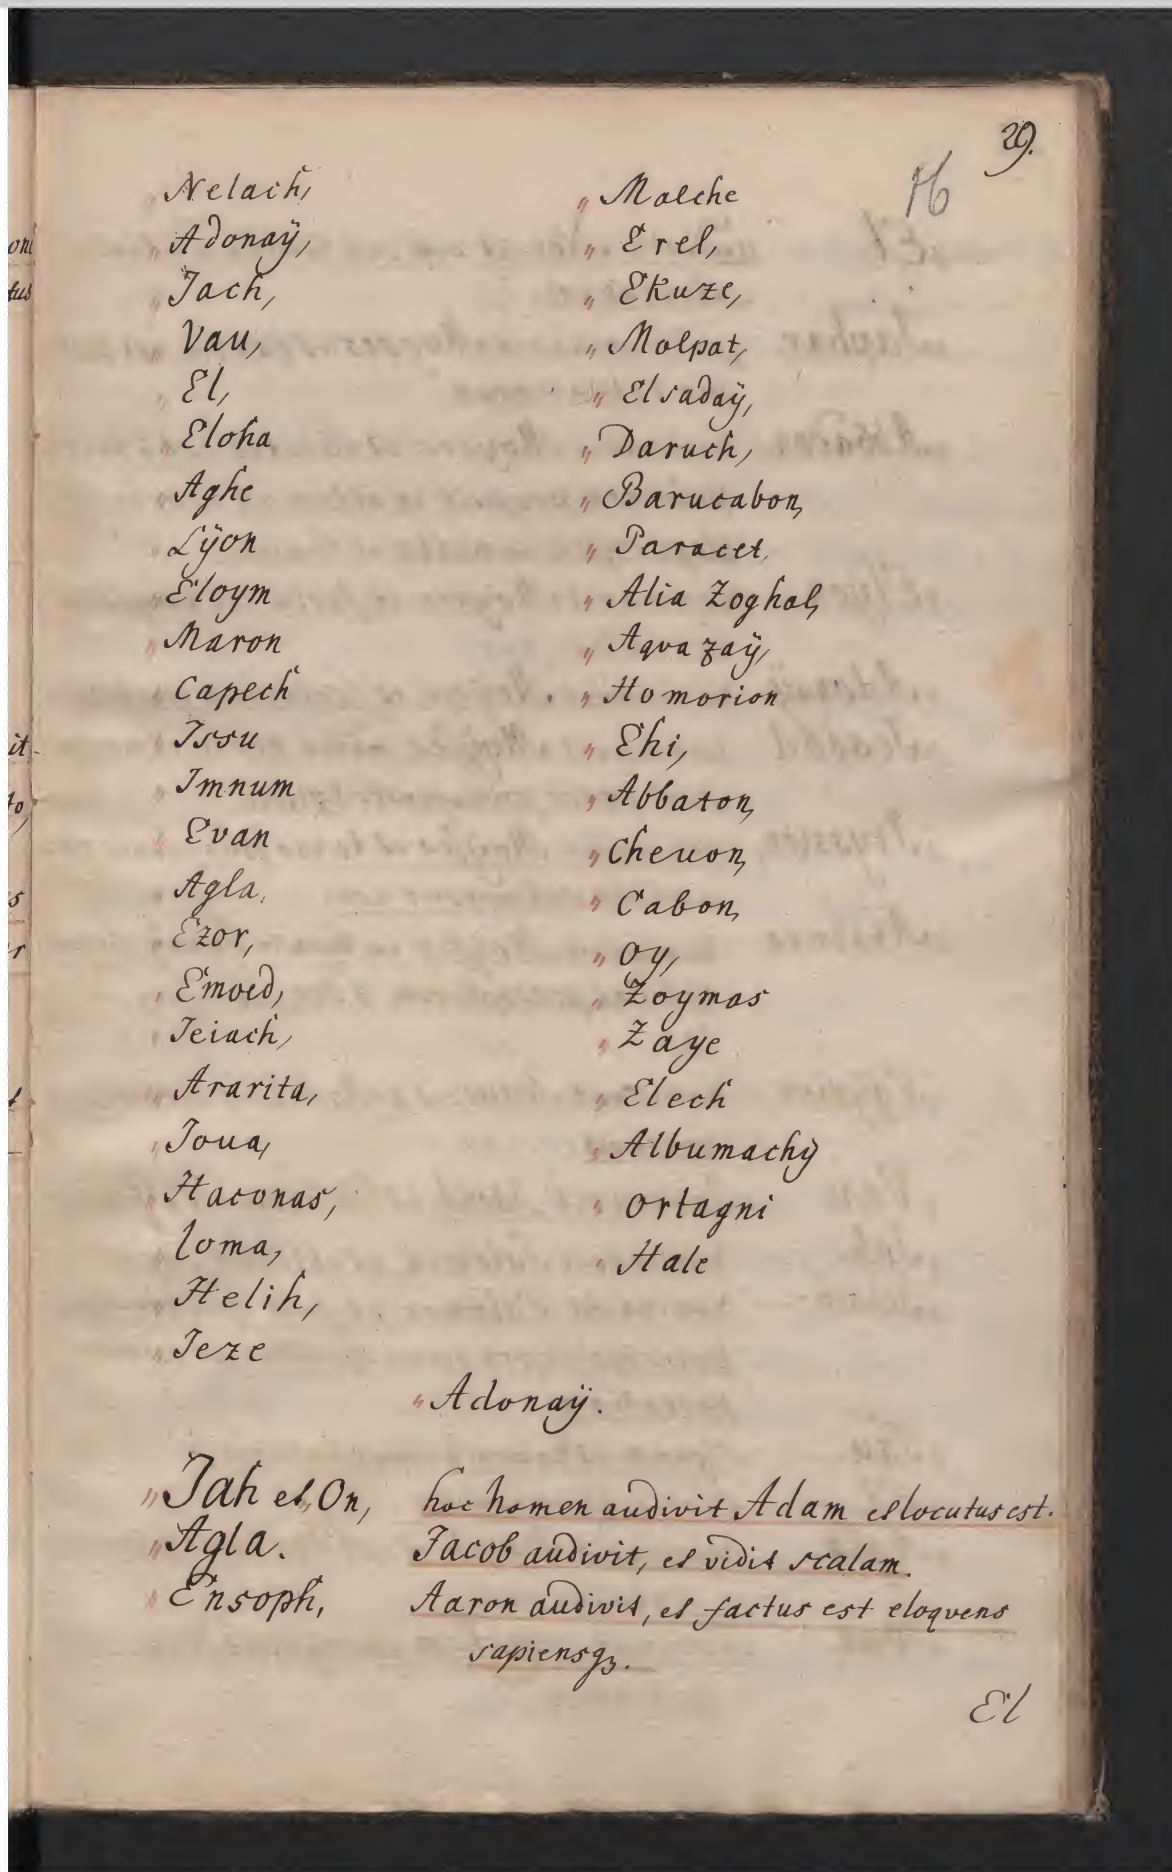 29.
16
Nelach,
Adonaÿ,
Jach,
Vau,
El,
Eloha
Aghe
Lÿon
Eloym
Maron
Capech
Issu
Imnum
Evan
Agla,
Ezor,
Emoed,
Jeiach,
Ararita,
Joua,
Haconas,
loma,
Helih,
Jeze
„ Malche
„ Erel,
„ Ekuze,
„ Molpat,
„ Elsadaÿ,
„ Daruch,
„ Barucabon,
„ Paracet,
„ Alia Zoghal,
„ Aqva zaÿ,
„ Homorion
„ Ehi,
„ Abbaton,
„ Cheuon,
„ Cabon,
„ Oy,
„ Zoymas
„ Zaye
„ Elech
„ Albumachÿ
„ Ortagni
„ Hale
„ Adonaÿ.
„ Jah et „ On, hoc Nomen audivit Adam et locutus est.
„ Agla. Jacob audivit, et vidit scalam.
„ Ensoph, Aaron audivit, et factus est eloqvens
sapiensqꝫ.
El